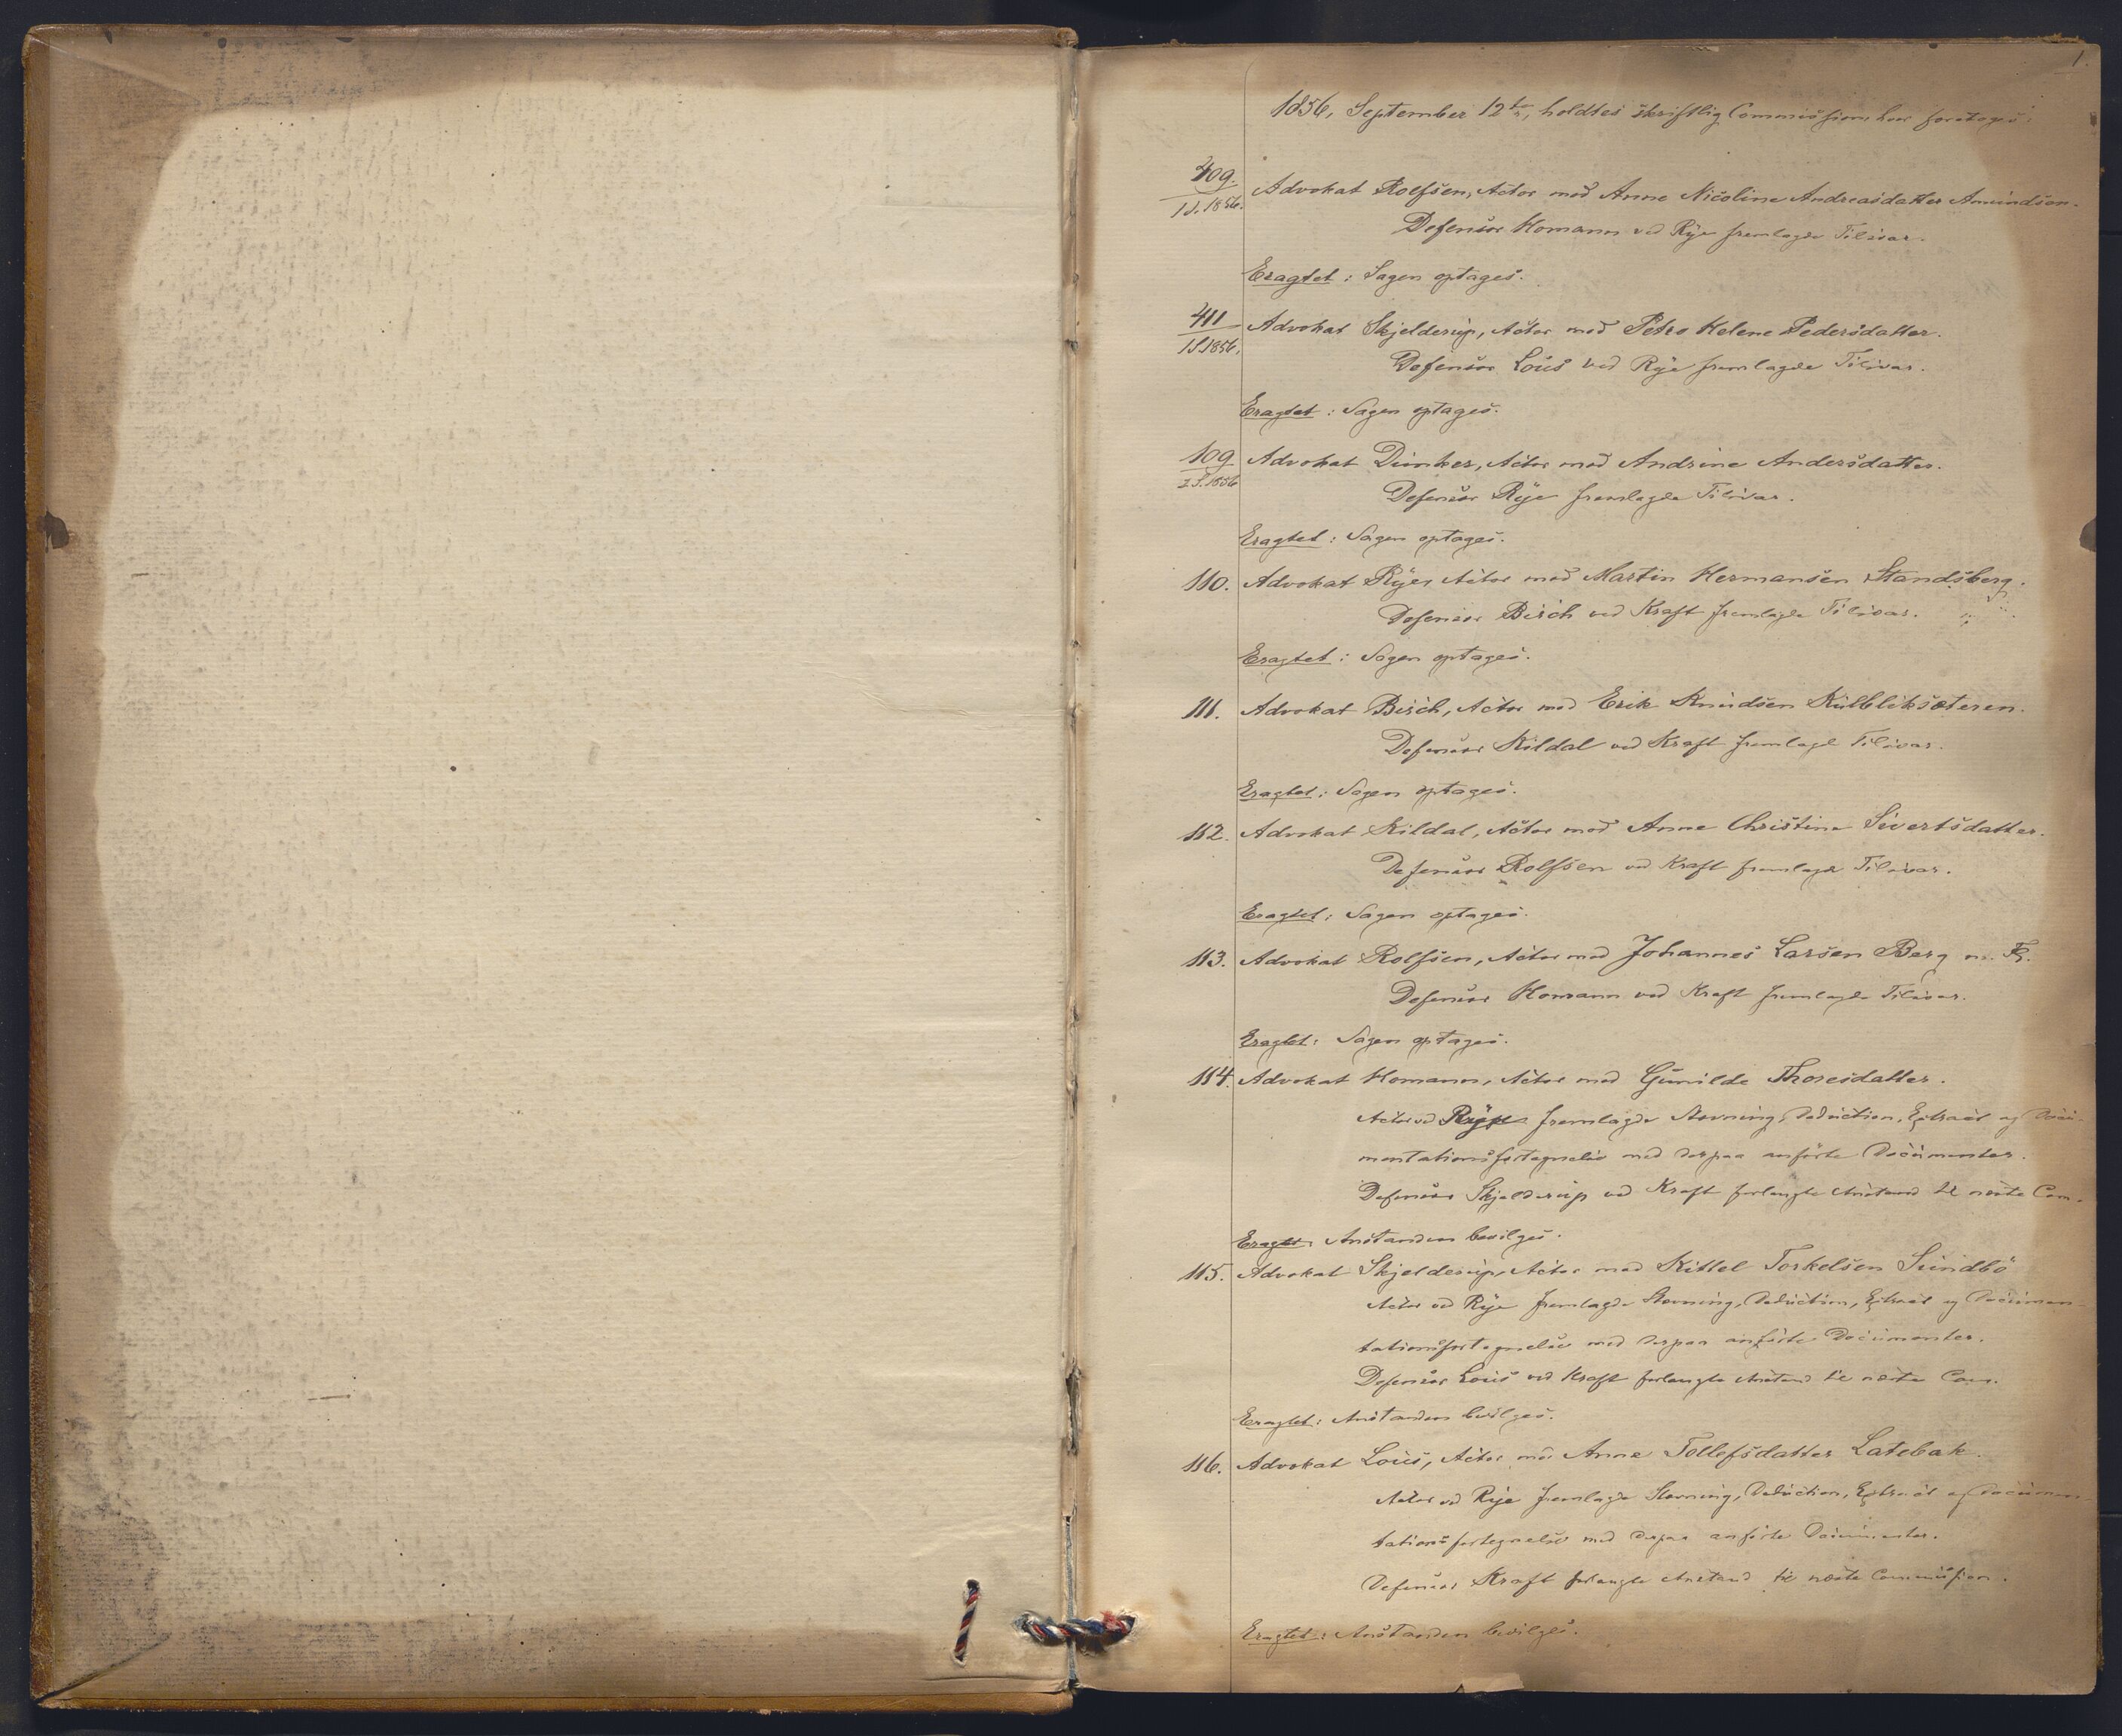 1.
1856, September 12te, holdtes skriftlig Commission, hvor foretoges:
409.
1 S. 1856.
Advokat Rolfsen, Actor mod Anne Nicoline Andreasdatter Amundsen.
Defensor Homann ved Rye fremlagde Tilsvar.
Eragtet: Sagen optages.
411
1 S. 1856.
Advokat Skjelderup, Actor mod Petra Helene Pedersdatter.
Defensor Lous ved Rye fremlagde Tilsvar.
Eragtet: Sagen optages.
109
2 S. 1856
Advokat Dunker, Actor mod Andrine Andersdatter.
Defensor Rye fremlagde Tilsvar.
Eragtet: Sagen optages.
110. Advokat Rye, Actor mod Martin Hermansen Standsberg.
Defensor Birch ved Kraft fremlagde Tilsvar.
Eragtet: Sagen optages.
111. Advokat Birch, Actor mod Erik Knudsen Kulbliksæteren.
Defensor Kildal ved Kraft fremlagde Tilsvar.
Eragtet: Sagen optages.
112. Advokat Kildal, Actor mod Anne Christine Sivertsdatter.
Defensor Rolfsen ved Kraft fremlagde Tilsvar.
Eragtet: Sagen optages.
113. Advokat Rolfsen, Actor mod Johannes Larsen Berg m. Fl.
Defensor Homann ved Kraft fremlagde Tilsvar.
Eragtet: Sagen optages.
114. Advokat Homann, Actor mod Gunilde Thoresdatter.
Actor ved Rye fremlagde Stevning, Deduction, Extract og Docu-
mentationsfortegnelse med derpaa anførte Documenter.
Defensor Skjelderup ved Kraft forlangte Anstand til næste Com.
Eragtet: Anstanden bevilges.
115. Advokat Skjelderup, Actor mod Kittel Torkelsen Sundbö
Actor ved Rye fremlagde Stevning, Deduction, Extract og Documen-
tationsfortegnelse med derpaa anførte Documenter.
Defensor Lous ved Kraft forlangte Anstand til næste Com.
Eragtet: Anstanden bevilges.
116. Advokat Lous, Actor mod Anne Tollefsdatter Latebak.
Actor ved Rye fremlagde Stevning, Deduction, Extract og Documen-
tationsfortegnelse med derpaa anførte Documenter.
Defensor Kraft forlangte Anstand til næste Commission.
Eragtet: Anstanden bevilges.